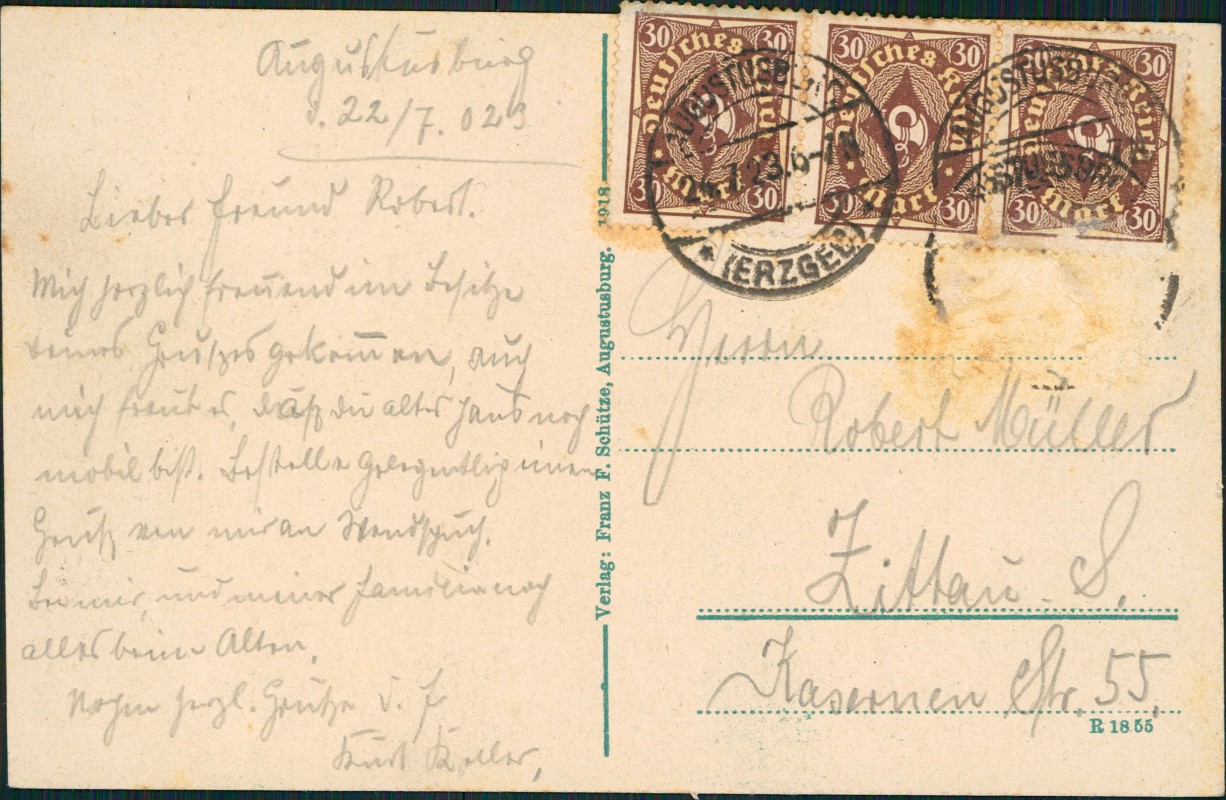 Augustusburg
d. 22/7. 023
Lieber Freund Robert.
Mich herzlich freuend im Besitze
deines Grußes gekommen, auch
mich freut es, daß du altes Haus noch
mobil bist. Bestelle gelegentlich einen
Gruß von mir an
Bei mir, und meiner Familie noch
alles beim Alten.
herzl. Grüße d. F
Kurt
Verlag: Franz F. Schütze, Augustusburg. 1918
30 30 30 30 30 30
Deutsches Reich Deutsches Reich Deutsches Reich
Mark Mark Mark
30 30 30 30 30 30
AUGUSTUSBURG
7.23.6-7
* (ERZGEB)
AUGUSTUSBURG
Herrn
Robert Müller
Zittau. S.
Kasernen Str. 55.
R 18 55